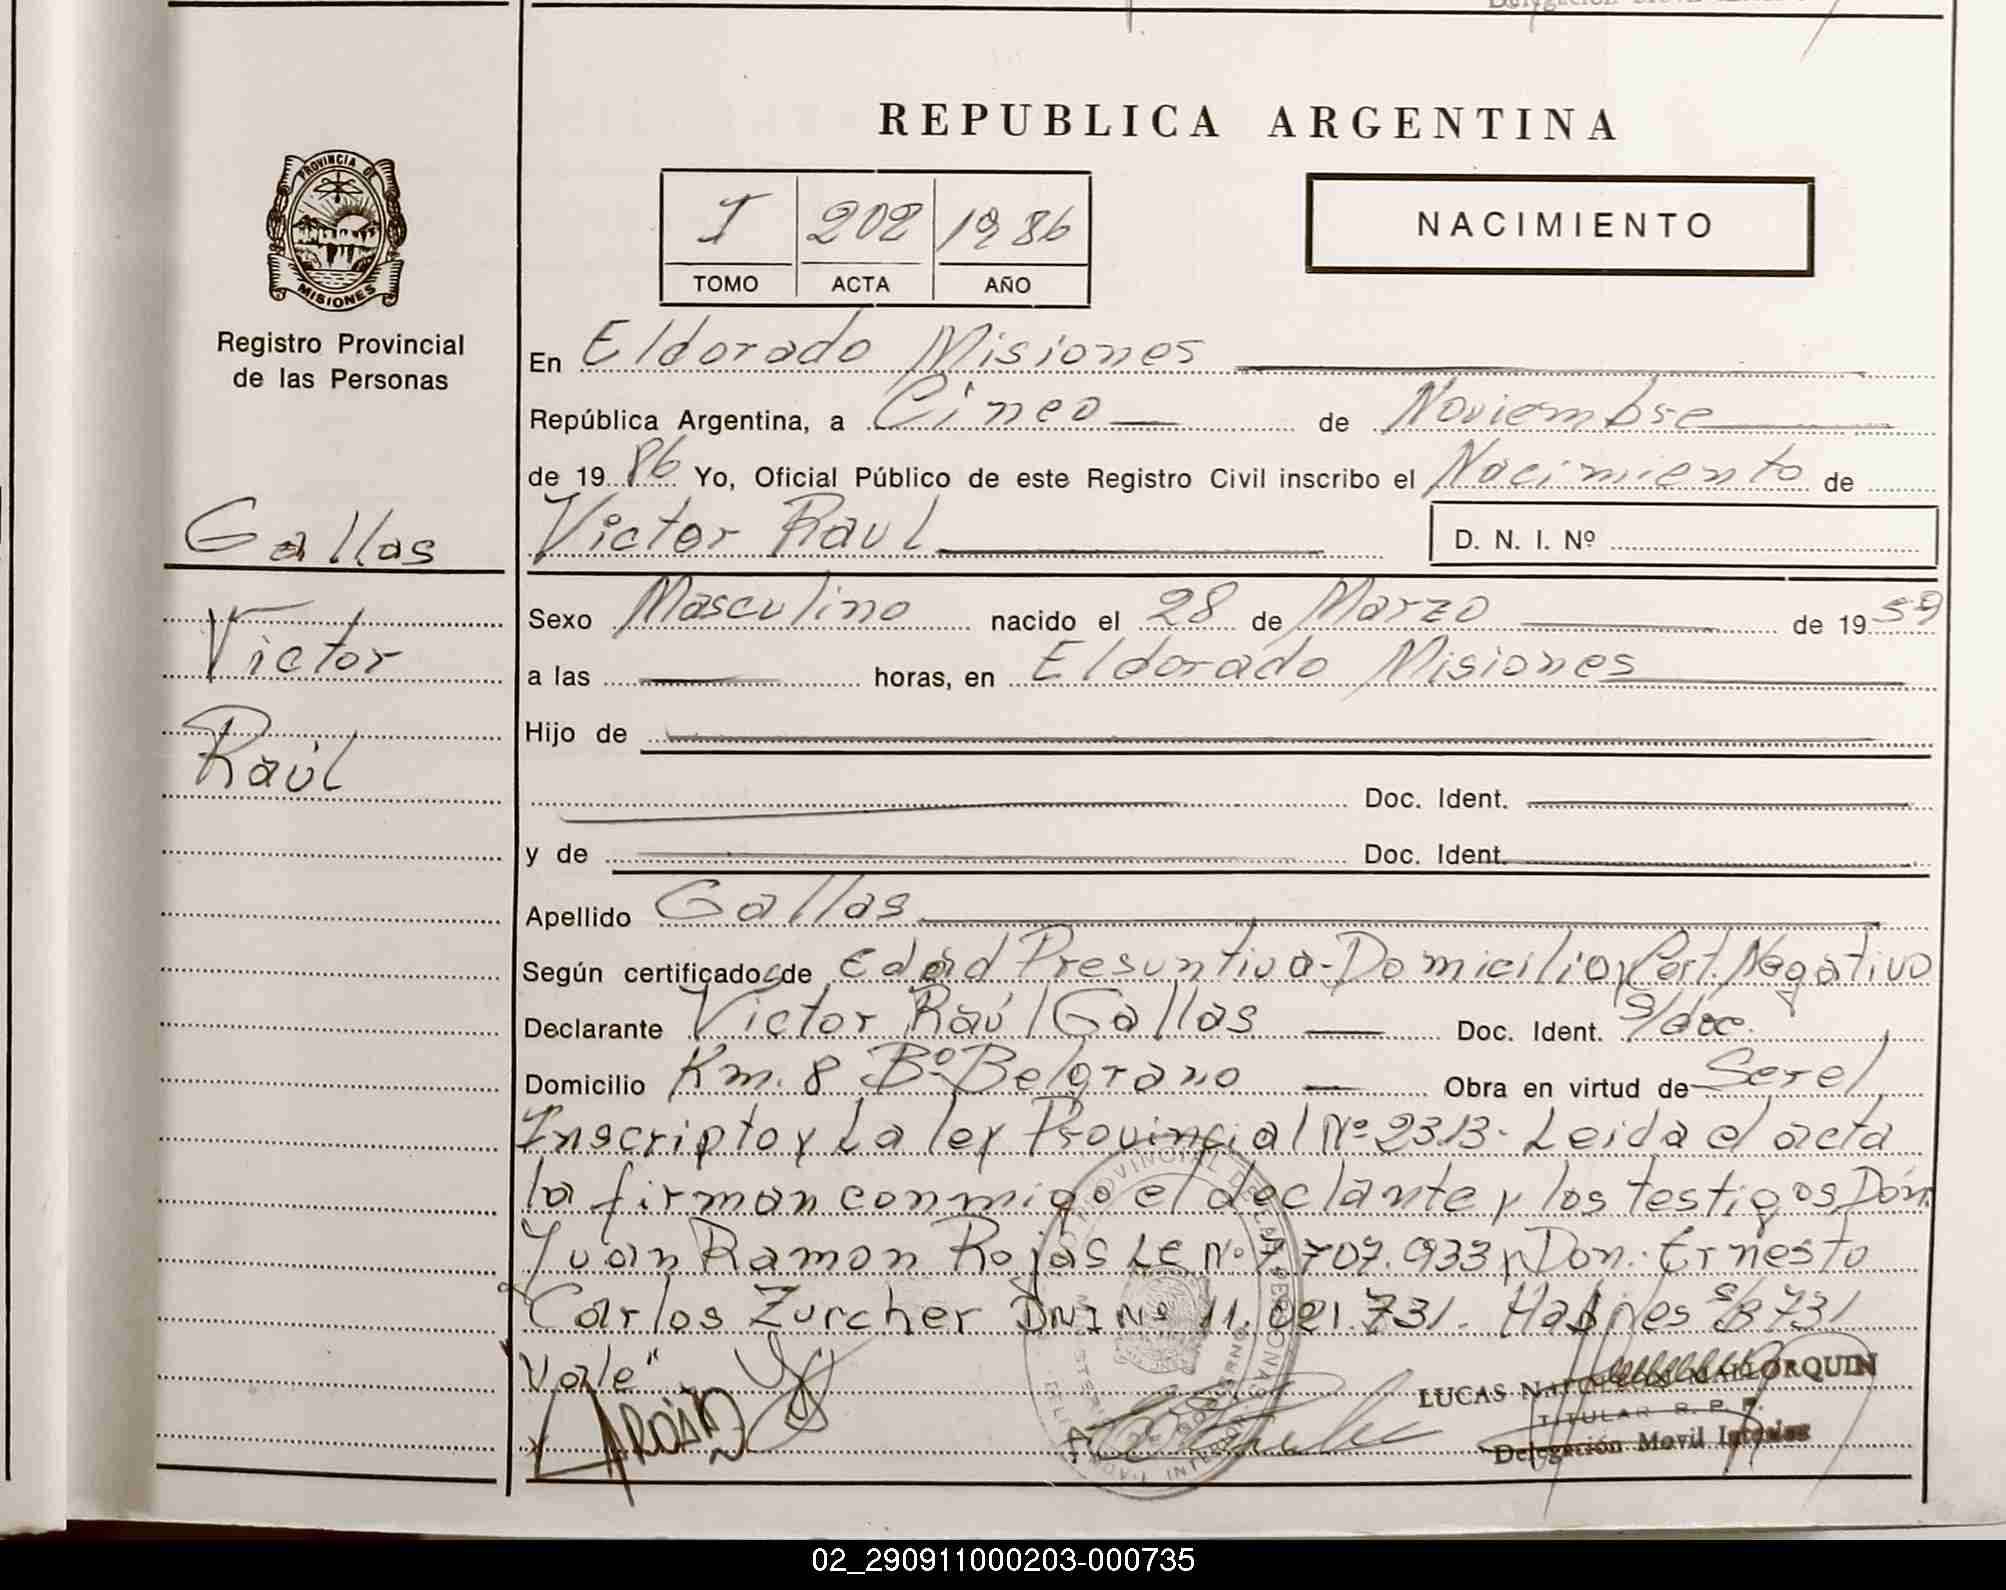 REPUBLICA ARGENTINA
PROVINCIA DE
MISIONES
Registro Provincial
de las Personas
I 202 1986
TOMO ACTA AÑO
NACIMIENTO
En Eldorado Misiones
República Argentina, a Cinco de Noviembre
de 1986 Yo, Oficial Público de este Registro Civil inscribo el Nacimiento de
Gallas
Victor Raul
D. N. I. Nº
Victor
Raúl
Sexo Masculino nacido el 28 de Marzo de 1959
a las horas, en Eldorado Misiones
Hijo de
Doc. Ident.
y de Doc. Ident.
Apellido Gallas
Según certificado de Edad Presuntiva-Domicilio y Cert. Negativo
Declarante Victor Raúl Gallas Doc. Ident. s/doc.
Domicilio Km. 8 Bº Belgrano Obra en virtud de Ser el
Inscripto y La ley Provincial Nº 2313- Leida el acta
la firman conmigo el declante y los testigos Dón
Juan Ramon Rojas LE Nº 7.707.933 y Don. Ernesto
Carlos Zurcher DNI Nº 11.021.731. s/B 731
Vale"
LUCAS MALLORQUIN
TITULAR R. P. P.
Delegación Movil
02_290911000203-000735